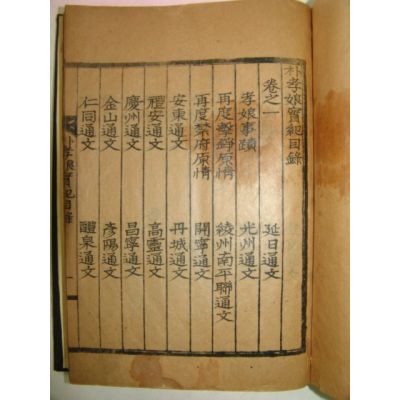 朴孝娘實紀目錄
卷之一 延日通文
孝娘事蹟 光州通文
再度擊錚原情 綾州南平聯通文
再度禁府原情 開寧通文
安東通文 丹城通文
禮安通文 高靈通文
慶州通文 昌寧通文
金山通文 彦陽通文
仁同通文 醴泉通文
朴孝娘實紀目錄 一